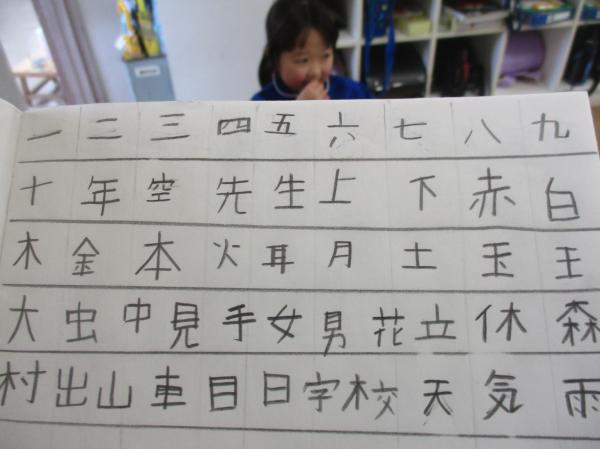 一 二 三 四 五 六 七 八 九
十 年 空 先 生 上 下 赤 白
木 金 本 火 耳 月 土 玉 王
大 虫 中 見 手 女 男 花 立 休 森
村 出 山 車 目 日 字 校 天 気 雨